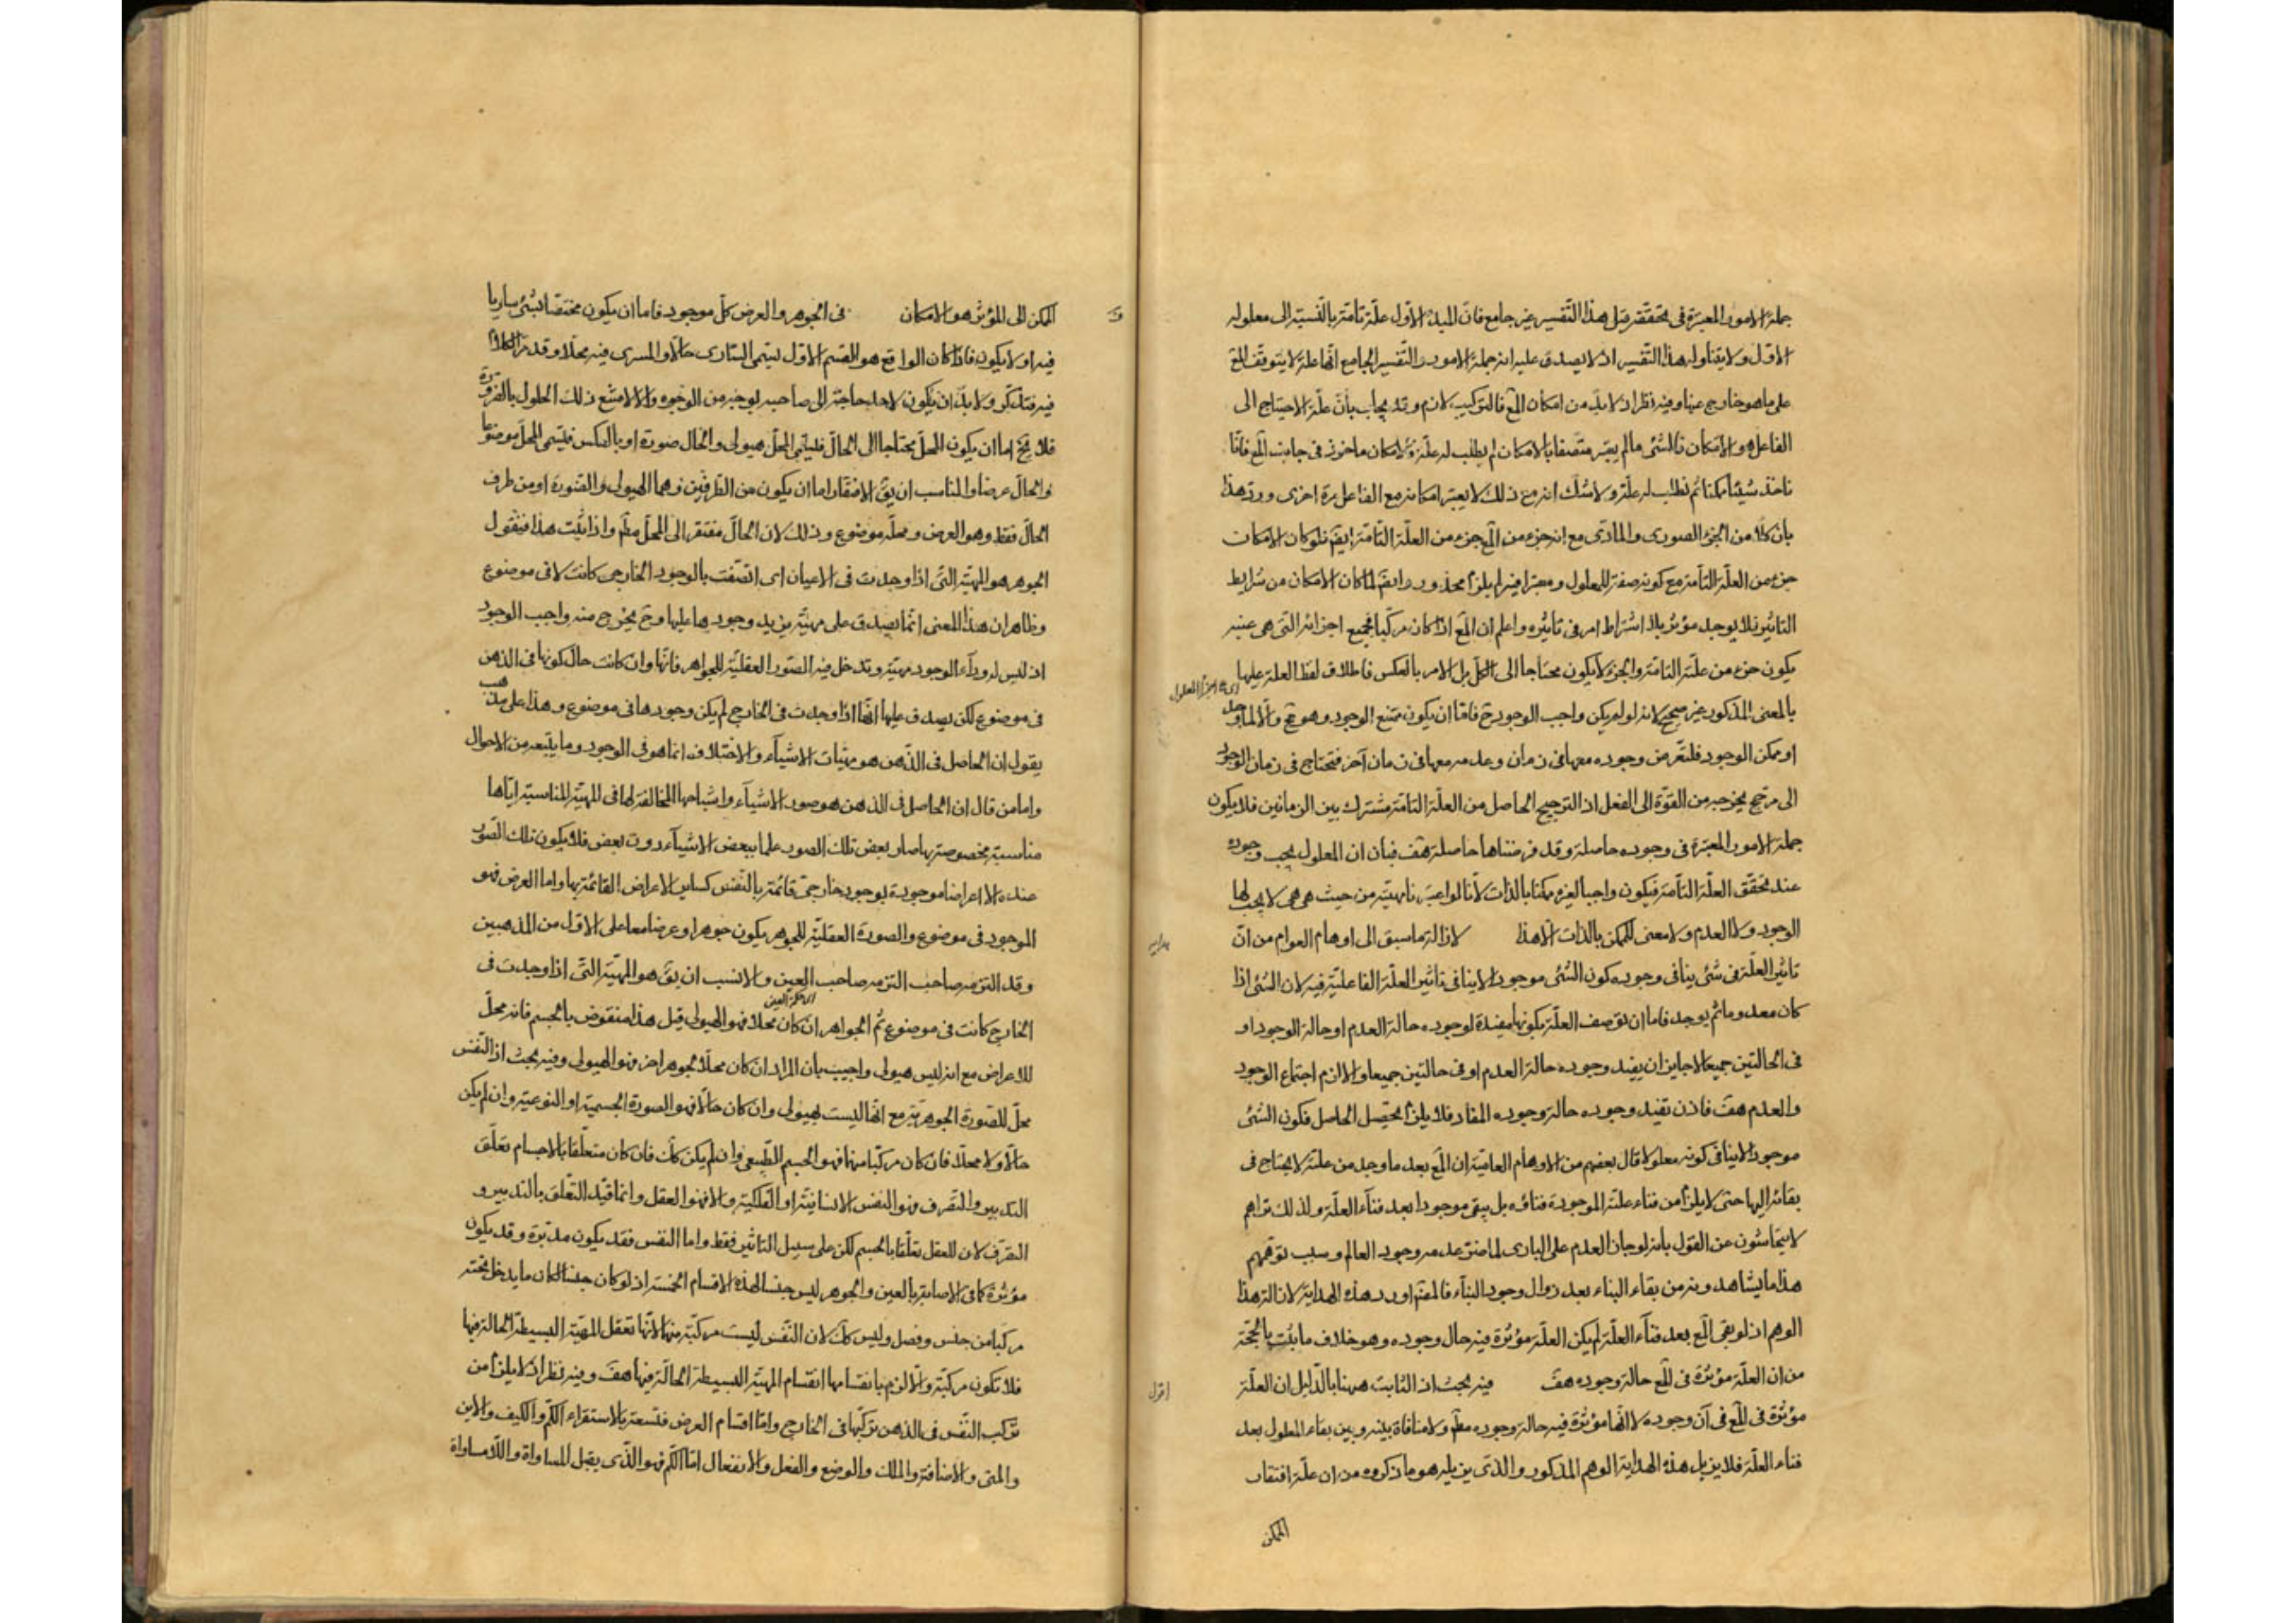 جملة الامور المعتبرة فى تحققه قيل هذا التفسير غير جامع فان المبدء الاول علة تامة بالنسبة الى معلوله
الاول ولا يتناوله هذا التفسير اذ لا يصدق عليه انه جملة الامور والتفسير الجامع انها علة لا يتوقف المع
على ما هو خارج عنها وفيه نظر اذ لا بد من امكان المع فالتركيب لازم وقد يجاب بان علة الاحتياج الى
الفاعل هو الامكان فالشئ مالم يعتبر متصفا بالامكان لم يطلب له علة فالامكان ماخوذ فى جانب المع فانا
ناخذ شيئا ممكنا ثم نطلب له علة ولا شك انه مع ذلك لا يعتبر امكانه مع الفاعل مرة اخرى ورد هذا
بان كلا من الجزء الصورى والمادى مع انه جزء من المع جزء من العلة التامة ايضا فلو كان الامكان
جزء من العلة التامة مع كونه صفة للمعلول ومعتبرا فيه لم يلزم محذور وايضا لما كان الامكان من شرايط
التاثير فلا يوجد مؤثر بلا اشتراط امر فى تاثيره واعلم ان المع اذا كان مركبا فجميع اجزائه التى هى عينه
يكون جزء من علته التامة والجزء لا يكون محتاجا الى الكل بل الامر بالعكس فاطلاق لفظ العلة عليها
اى على اجزاء المعلول
بالمعنى المذكور غير صحيح لانه لو لم يكن واجب الوجود ح فاما ان يكون ممتنع الوجود وهو مح والا لما وجد
او ممكن الوجود فلنفرض وجوده معها فى زمان وعدمه معها فى زمان آخر فيحتاج فى زمان الوجود
الى مرجح يخرجه من القوة الى الفعل اذ الترجيح الحاصل من العلة التامة مشترك بين الزمانين فلا يكون
جملة الامور المعتبرة فى وجوده حاصلة وقد فرضناها حاصلة هف فبان ان المعلول يجب وجوده
عند تحقق العلة التامة فيكون واجبا لغيره ممكنا بالذات لانا لو اعتبرنا مهيته من حيث هى هى لا يجب لها
الوجود ولا العدم ولا معنى للممكن بالذات الا هذا لازالة ما سبق الى اوهام العوام من ان
هداية
تاثير العلة فى شئ ينافى وجوده كون الشئ موجودا لا ينافى تاثير العلة الفاعلية فيه لان الشئ اذا
كان معدوما ثم يوجد فاما ان توصف العلة بكونها مفيدة لوجوده حالة العدم او حالة الوجود او
فى الحالتين جميعا لا جايز ان يفيد وجوده حالة العدم او فى حالتين جميعا والا لزم اجتماع الوجود
والعدم هف فاذن تفيد وجوده حالة وجوده المفاد فلا يلزم تحصيل الحاصل فكون الشئ
موجودا لا ينافى كونه معلولا قال بعضهم من الاوهام العامية ان المع بعد ما وجد من علته لا يحتاج فى
بقائه اليها حتى لا يلزم من فناء علته الموجودة فناؤه بل يبقى موجودا بعد فناء العلة ولذلك تراهم
لا يتحاشون عن القول بانه لو جاز العدم على البارى لما ضر عدمه وجود العالم وسبب توهمهم
هذا ما يشاهدونه من بقاء البناء بعد زوال وجود البناء فالمص اورد هذه الهداية لازالة هذا
الوهم اذ لو بقى المع بعد فناء العلة لم يكن العلة مؤثرة فيه حال وجوده وهو خلاف ما ثبت بالحجة
من ان العلة مؤثرة فى المع حالة وجوده هف فيه بحث اذ الثابت ههنا بالدليل ان العلة
اقول
مؤثرة فى المع فى آن وجوده لا انها مؤثرة فيه حالة وجوده مطم ولا منافاة بينه وبين بقاء المعلول بعد
فناء العلة فلا يزيل هذه الهداية الوهم المذكور والذى يزيله هو ما ذكروه من ان علة افتقار
الممكن
الممكن الى المؤثر هو الامكان فى الجوهر والعرض كل موجود فاما ان يكون مختصا بشئ ساريا
فيه او لا يكون فاذا كان الواقع هو القسم الاول يسمى السارى حالا والمسرى فيه محلا وقد مر الكلام
فيه فتذكر ولا بد ان يكون لاحدهما حاجة الى صاحبه بوجه من الوجوه والا لامتنع ذلك الحلول بالضرورة
فلا يخ اما ان يكون المحل محتاجا الى الحال فليسمى المحل هيولى والحال صورة او بالعكس فليسمى المحل موضوعا
والحال عرضا والمناسب ان يق الافتقار اما ان يكون من الطرفين وهما الهيولى والصورة او من طرف
الحال فقط وهو العرض ومحله موضوع وذلك لان الحال مفتقر الى المحل مطم واذا ثبت هذا فنقول
الجوهر هو المهية التى اذا وجدت فى الاعيان اى اتصفت بالوجود الخارجى كانت لا فى موضوع
وظاهر ان هذا المعنى انما يصدق على مهية يزيد وجودها عليها وح يخرج منه واجب الوجود
اذ ليس له وراء الوجود مهية وتدخل فيه الصور العقلية للجواهر فانها وان كانت حال كونها فى الذهن
فى موضوع لكن يصدق عليها انها اذا وجدت فى الخارج لم يكن وجودها فى موضوع وهذا على مذهب
يقول ان الحاصل فى الذهن هو مهيات الاشياء والاختلاف انما هو فى الوجود وما يتبعه من الاحوال
واما من قال ان الحاصل فى الذهن هو صور الاشياء واشباحها المخالفة لها فى المهية المناسبة اياها
مناسبة مخصوصة بها صار بعض تلك الصور علما ببعض الاشياء دون بعض فلا يكون تلك الصور
عنده الا اعراضا موجودة بوجود خارجى قائمة بالنفس كساير الاعراض القائمة بها واما العرض فهو
الموجود فى موضوع والصورة العقلية للجوهر يكون جوهرا وعرضا معا على الاول من المذهبين
وقد التزمه صاحب العين والانسب ان يق هو المهية التى اذا وجدت فى
الخارج كانت فى موضوع ثم الجواهر ان كان محلا فهو الهيولى قيل هذا منقوض بالجسم فانه محل
للاعراض مع انه ليس هيولى واجيب بان المراد ان كان محلا لجوهر اخر فهو الهيولى وفيه بحث اذ النفس
محل للصورة الجوهرية مع انها ليست بهيولى وان كان حالا فهو الصورة الجسمية او النوعية وان لم يكن
حالا ولا محلا فان كان مركبا منهما فهو الجسم الطبيعى وان لم يكن كك فان كان متعلقا بالاجسام تعلق
التدبير والتصرف فهو النفس الانسانية او الفلكية والا فهو العقل وانما قيد التعلق بالتدبير و
التصرف لان للعقل تعلقا بالجسم لكن على سبيل التاثير فقط واما النفس فقد يكون مدبرة وقد يكون
مؤثرة كما فى الاصابة بالعين والجوهر ليس جنسا لهذه الاقسام الخمسة اذ لو كان جنسا لكان ما يدخل تحته
مركبا من جنس وفصل وليس كك لان النفس ليست مركبة منهما لانها تعقل المهية البسيطة الحالة فيها
فلا تكون مركبة والا لزم بانقسامها انقسام المهية البسيطة الحالة فيها هف وفيه نظر اذ لا يلزم من
تركب النفس فى الذهن تركبها فى الخارج واما اقسام العرض فتسعة بالاستقراء الكم والكيف والاين
والمتى والاضافة والملك والوضع والفعل والانفعال اما الكم فهو الذى يقبل المساواة واللامساواة